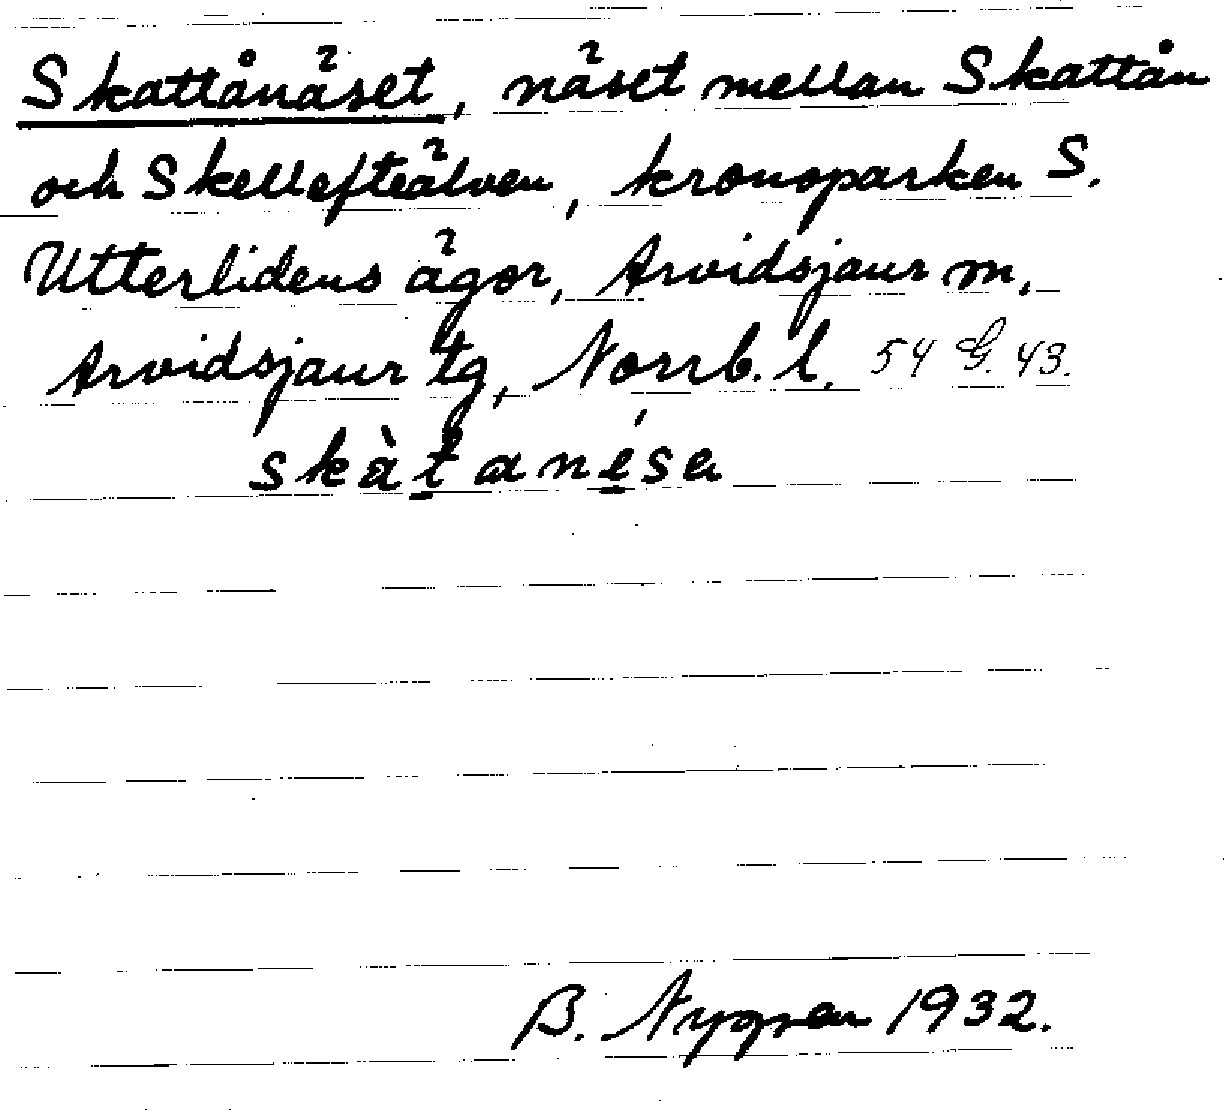 Skattånäset, näset mellan Skattån
och Skellefteälven, kronoparken S.
Utterlidens ägor, Arvidsjaur m,
Arvidsjaur tg, Norrb. l. 54 G. 43.
skàt̲ané̲sa
B. Nygren 1932.